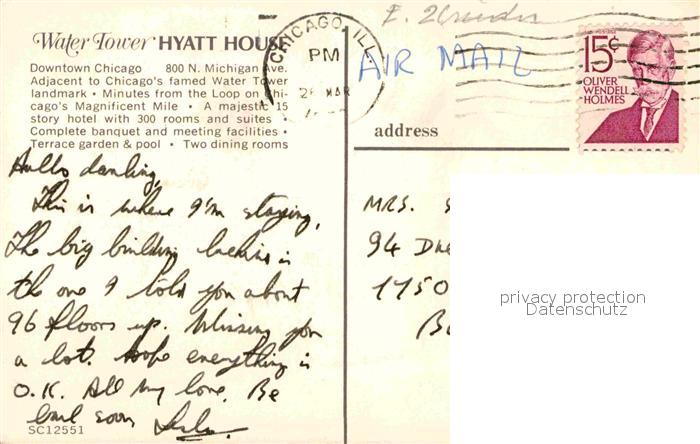 Water Tower HYATT HOUSE
Downtown Chicago 800 N. Michigan Ave.
Adjacent to Chicago's famed Water Tower
landmark • Minutes from the Loop on Chi-
cago's Magnificent Mile • A majestic 15
story hotel with 300 rooms and suites •
Complete banquet and meeting facilities •
Terrace garden & pool • Two dining rooms
Hullo darling,
This is where I'm staying,
The big building behind is
the one I told you about
96 floors up. Missing you
a lot. Hope everything is
O.K. All my love. Be
back soon
SC12551
CHICAGO, ILL
PM
MAR
AIR MAIL
15¢
OLIVER
WENDELL
HOLMES
address
MRS.
94
1750
privacy protection
Datenschutz